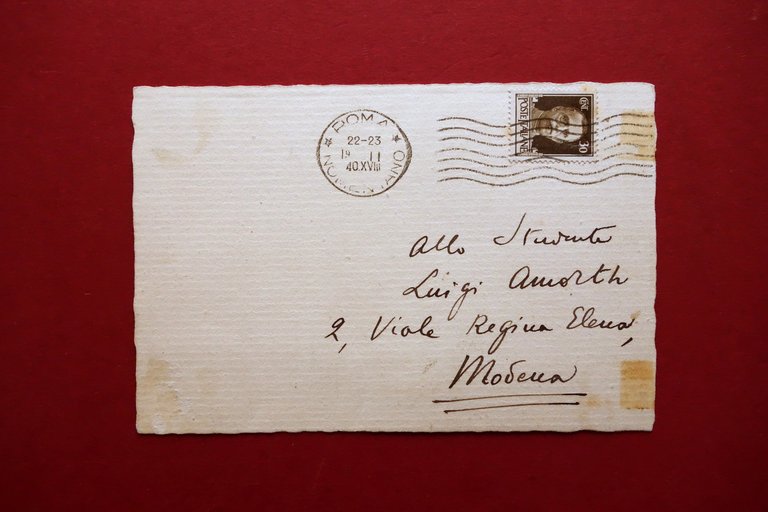 ROMA
22-23
19 II
40.XVIII
NOMENTANO
POSTE ITALIANE
CENT 30
Allo Studente
Luigi Amorth
2, Viale Regina Elena,
Modena